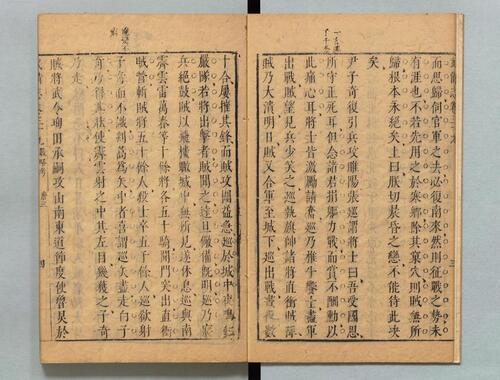 而思歸何官軍之去必復南來然則征戰之勢未
有涯也不若先用之於寒鄉除其巢穴則賊無所
歸根本永絕矣上曰朕切晨昏之戀不能待此決
矣
尹子奇復引兵攻睢陽張巡謂將士曰吾受國恩
所守正死耳但念諸君捐軀力戰而賞不酬勳以
此痛心耳將士皆激勵請奮巡乃椎牛饗士盡軍
出戰賊望見兵少笑之巡執旗帥諸將直衝賊陣
賊乃大潰明日賊又合軍至城下巡出戰晝夜數
十合屢摧其鋒而賊攻圍益急巡於城中夜鳴鼓
嚴隊若將出擊者賊聞之達旦儆備既明巡乃寢
兵絕鼓賊以飛樓瞰城中無所見遂休息巡與南
霽雲雷萬春等十餘將各五十騎開門突出直衝
賊營斬賊將五十餘人殺士卒五千餘人巡欲射
子奇而不識剡蒿為矢中者喜謂巡矢盡走白子
奇乃得其狀使霽雲射之中其左目幾獲之子奇
乃走
賊將武令珣田承嗣攻山南東道節度使魯炅於